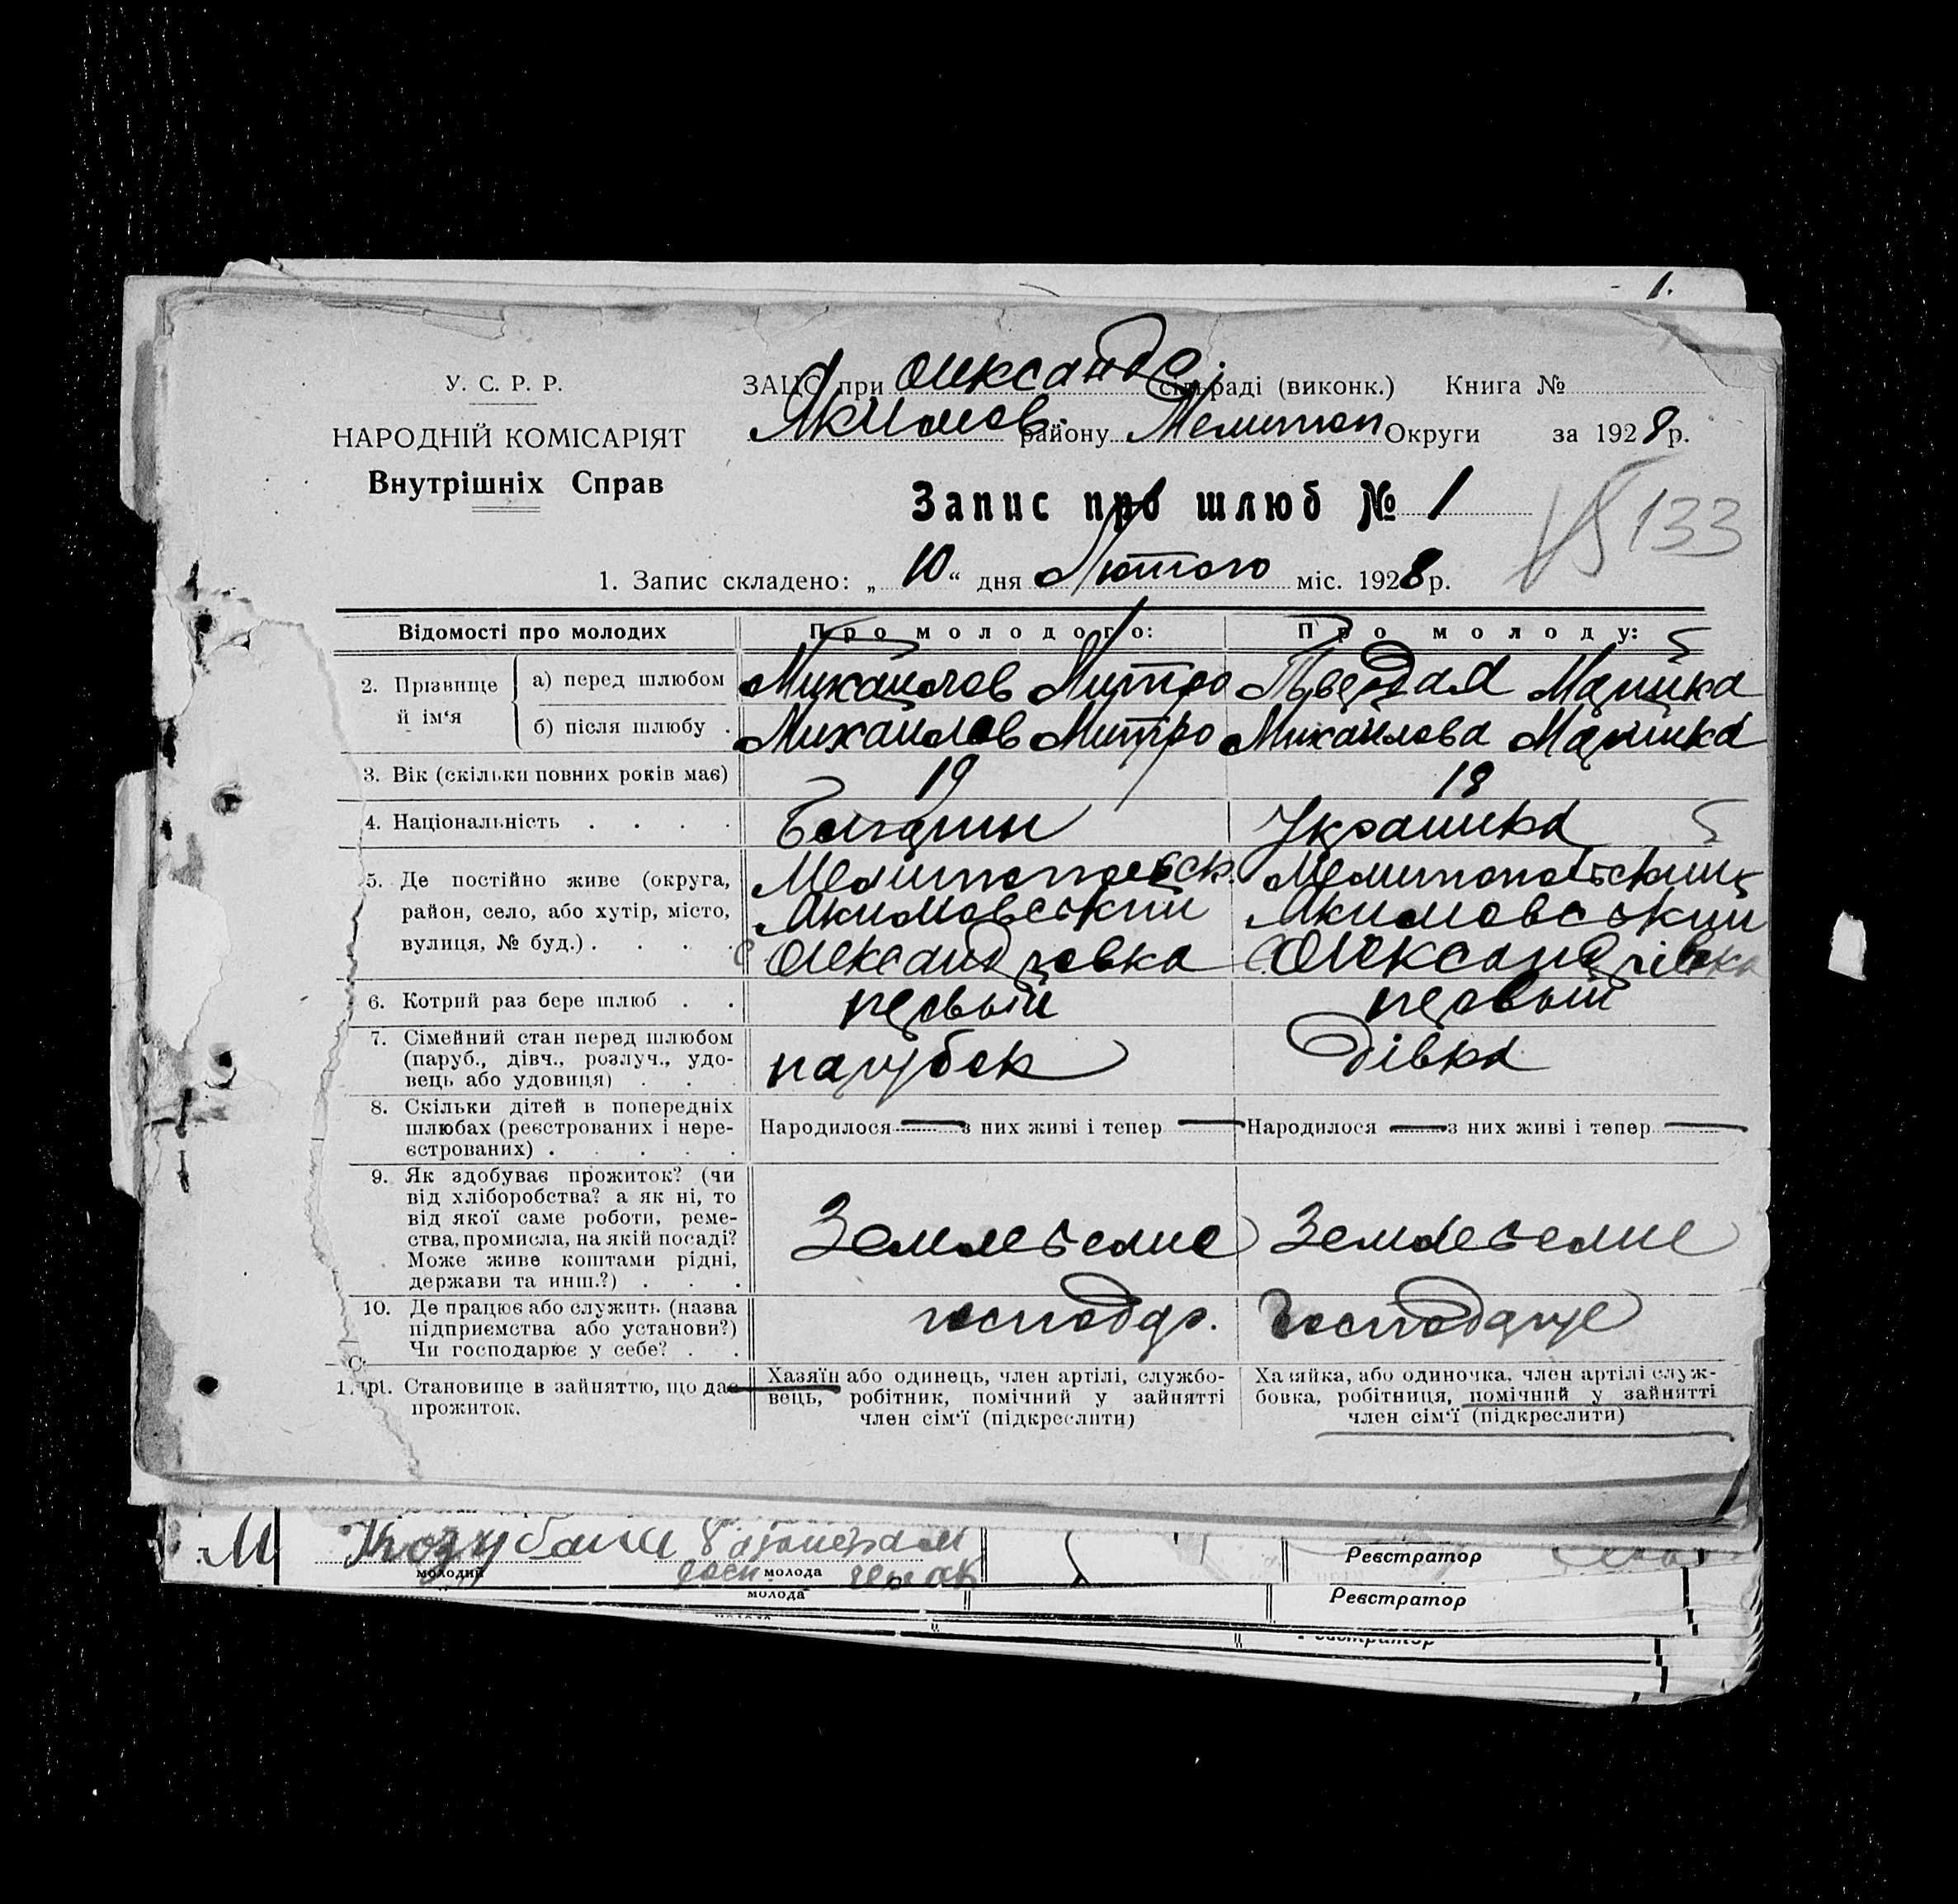 1.
У. С. Р. Р.
НАРОДНІЙ КОМІСАРІЯТ
Внутрішніх Справ
ЗАЦС при Олександр. сільраді (виконк.) Книга №
Якимов. району Мелитоп Округи за 1928 р.
Запис про шлюб № 1
133
1. Запис складено: „ 10 “ дня Лютого міс. 1928 р.
Відомості про молодих
Про молодого:
Про молоду:
2. Прізвище й ім‘я
а) перед шлюбом
Михайлов Митро
Твердая Марийка
б) після шлюбу .
Михайлов Митро
Михайлова Марийка
3. Вік (скільки повних років має)
19
18
4. Національність . . . .
Болгарин
Украинка
5. Де постійно живе (округа,
район, село, або хутір, місто,
вулиця, № буд.) . . . .
Мелитопольск.
Якимовський
с Олександровка
Мелитопольский
Якимовський
с. Олександрівка
6. Котрий раз бере шлюб . .
первый
первый
7. Сімейний стан перед шлюбом
(паруб., дівч., розлуч., удо-
вець або удовиця) . . .
парубок
дівка
8. Скільки дітей в попередніх
шлюбах (реєстрованих і нере-
єстрованих) . . . . .
Народилося — з них живі і тепер —
Народилося — з них живі і тепер —
9. Як здобуває прожиток? (чи
від хліборобства? а як ні, то
від якої саме роботи, реме-
ства, промисла, на якій посаді?
Може живе коштами рідні,
держави та инш.?) . . .
Земледелие
Земледелие
10. Де працює або служить (назва
підприємства або установи?)
Чи господарює у себе? . .
господар.
Господарує
Становище в зайняттю, що дає
прожиток.
Хазяїн або одинець, член артілі, службо-
вець, робітник, помічний у зайнятті
член сім‘ї (підкреслити)
Хазяйка, або одиночка, член артілі служ-
бовка, робітниця, помічний у зайнятті
член сім‘ї (підкреслити)
молодий
молода
Реєстратор
молода
Реєстратор
Реєстратор